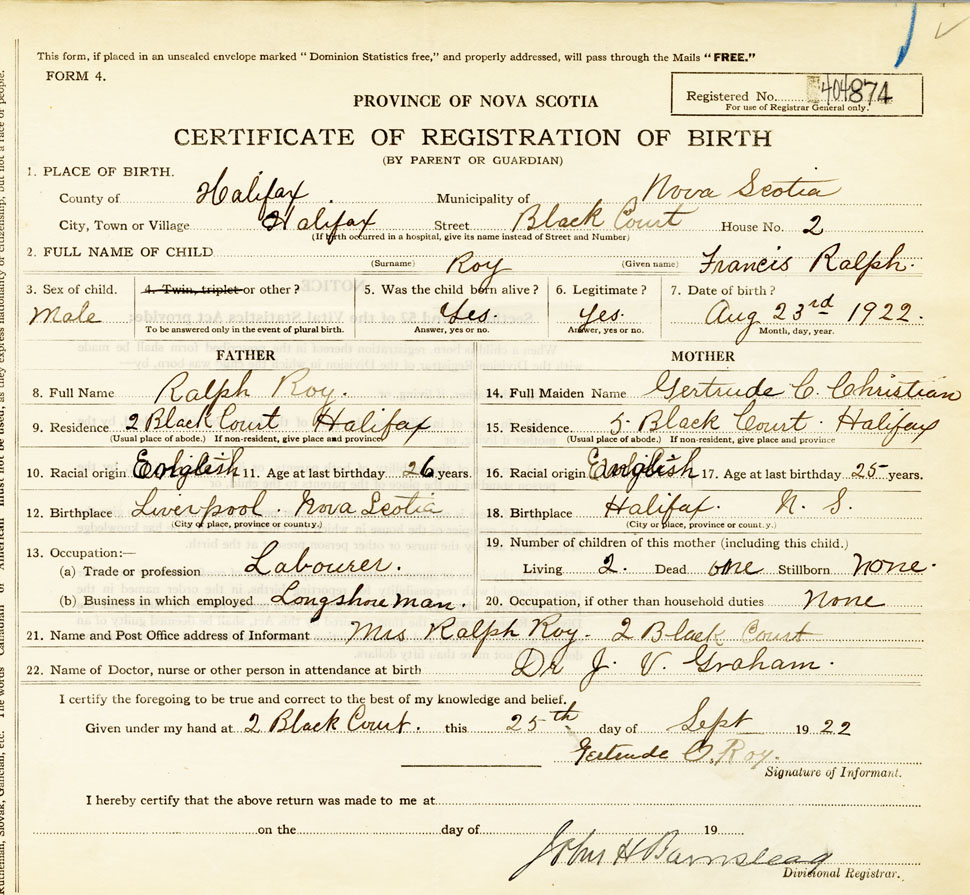 This form, if placed in an unsealed envelope marked "Dominion Statistics free," and properly addressed, will pass through the Mails "FREE."
FORM 4.
Registered No. 404874
For use of Registrar General only.
PROVINCE OF NOVA SCOTIA
CERTIFICATE OF REGISTRATION OF BIRTH
(BY PARENT OR GUARDIAN)
1. PLACE OF BIRTH.
County of Halifax Municipality of Nova Scotia
City, Town or Village Halifax Street Black Court House No. 2
(If birth occurred in a hospital, give its name instead of Street and Number)
2. FULL NAME OF CHILD (Surname) Roy (Given name) Francis Ralph.
3. Sex of child. 4. Twin, triplet or other? 5. Was the child born alive? 6. Legitimate? 7. Date of birth?
Male Yes. Yes. Aug 23rd 1922.
To be answered only in the event of plural birth. Answer, yes or no. Answer, yes or no. Month, day, year.
FATHER MOTHER
8. Full Name Ralph Roy. 14. Full Maiden Name Gertrude C. Christian
9. Residence 2 Black Court Halifax 15. Residence. 5. Black Court. Halifax
(Usual place of abode.) If non-resident, give place and province (Usual place of abode.) If non-resident, give place and province
10. Racial origin English 11. Age at last birthday 26 years. 16. Racial origin English 17. Age at last birthday 25 years.
12. Birthplace Liverpool. Nova Scotia 18. Birthplace Halifax. N. S.
(City or place, province or country.) (City or place, province or country.)
13. Occupation:— 19. Number of children of this mother (including this child.)
(a) Trade or profession Labourer. Living 2. Dead one Stillborn None.
(b) Business in which employed Longshoreman. 20. Occupation, if other than household duties None
21. Name and Post Office address of Informant Mrs Ralph Roy. 2 Black Court
22. Name of Doctor, nurse or other person in attendance at birth Dr J. V. Graham.
I certify the foregoing to be true and correct to the best of my knowledge and belief.
Given under my hand at 2 Black Court. this 25th day of Sept 1922
Gertrude C. Roy.
Signature of Informant.
I hereby certify that the above return was made to me at
on the day of 19
John H Barnstead
Divisional Registrar.